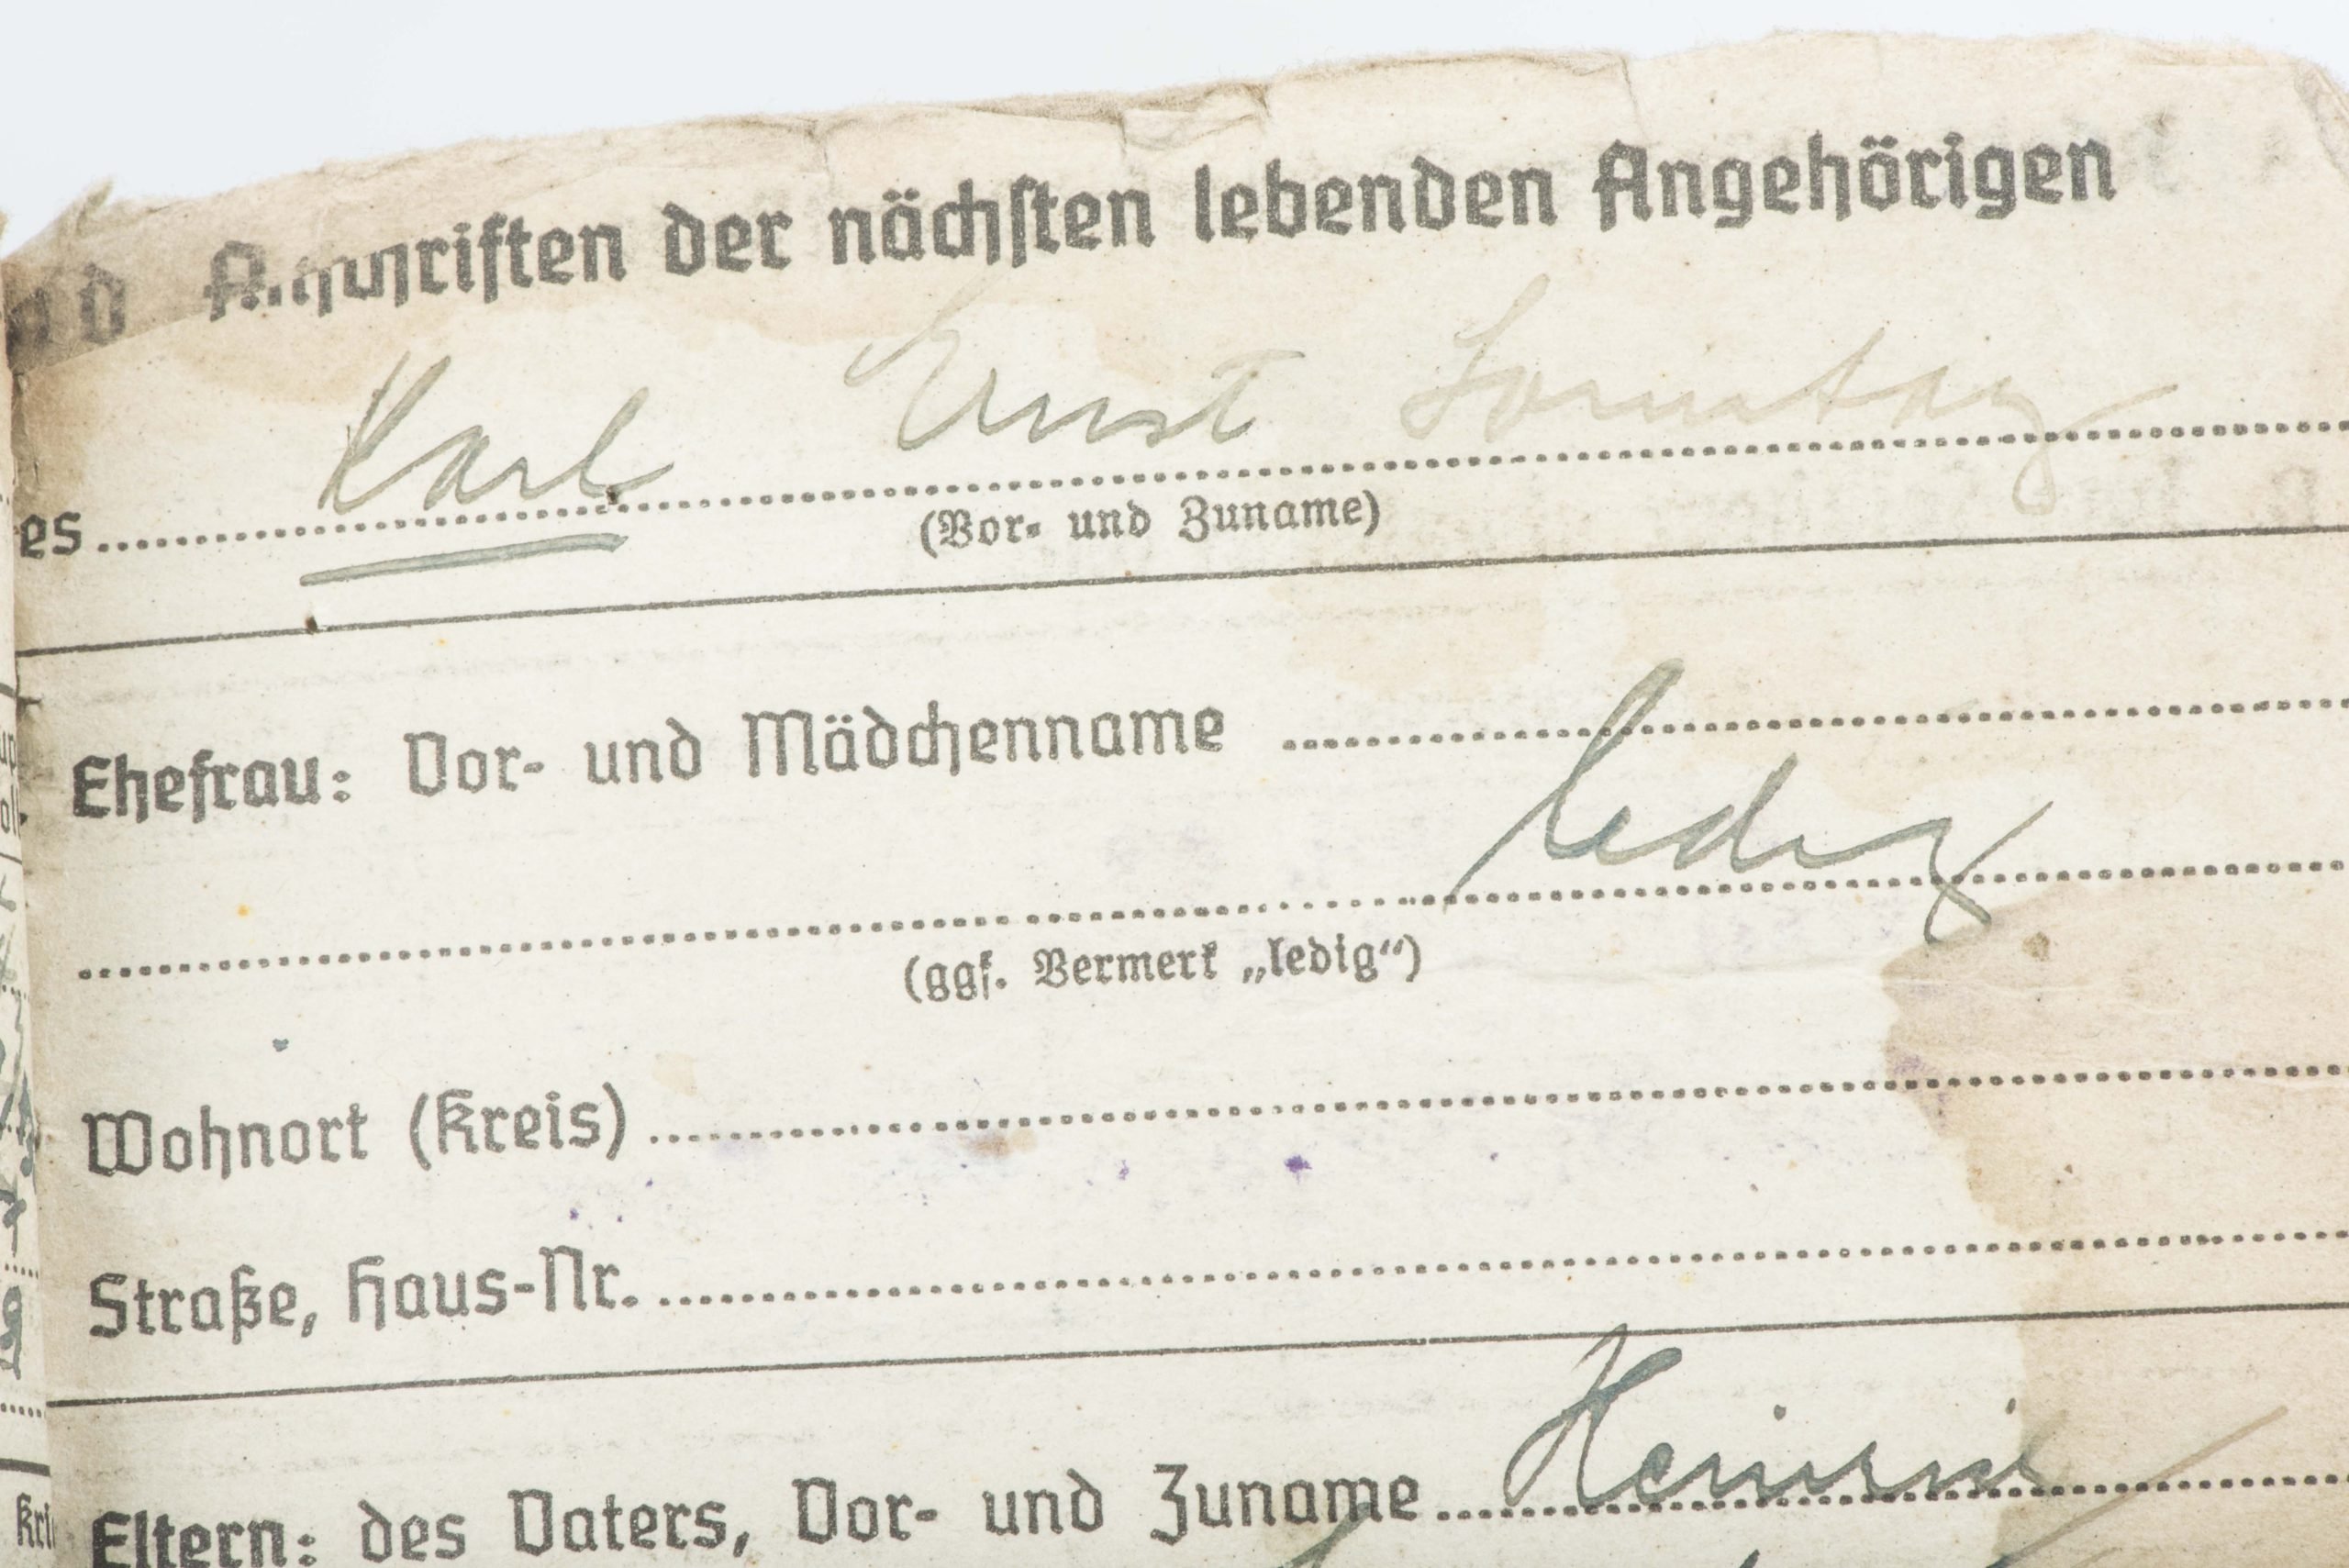 nd Anschriften der nächsten lebenden Angehörigen
es Karl Ernst Sonntag
(Vor- und Zuname)
Ehefrau: Vor- und Mädchenname
ledig
(ggf. Vermerk „ledig“)
Wohnort (Kreis)
Straße, Haus-Nr.
Eltern: des Vaters, Vor- und Zuname